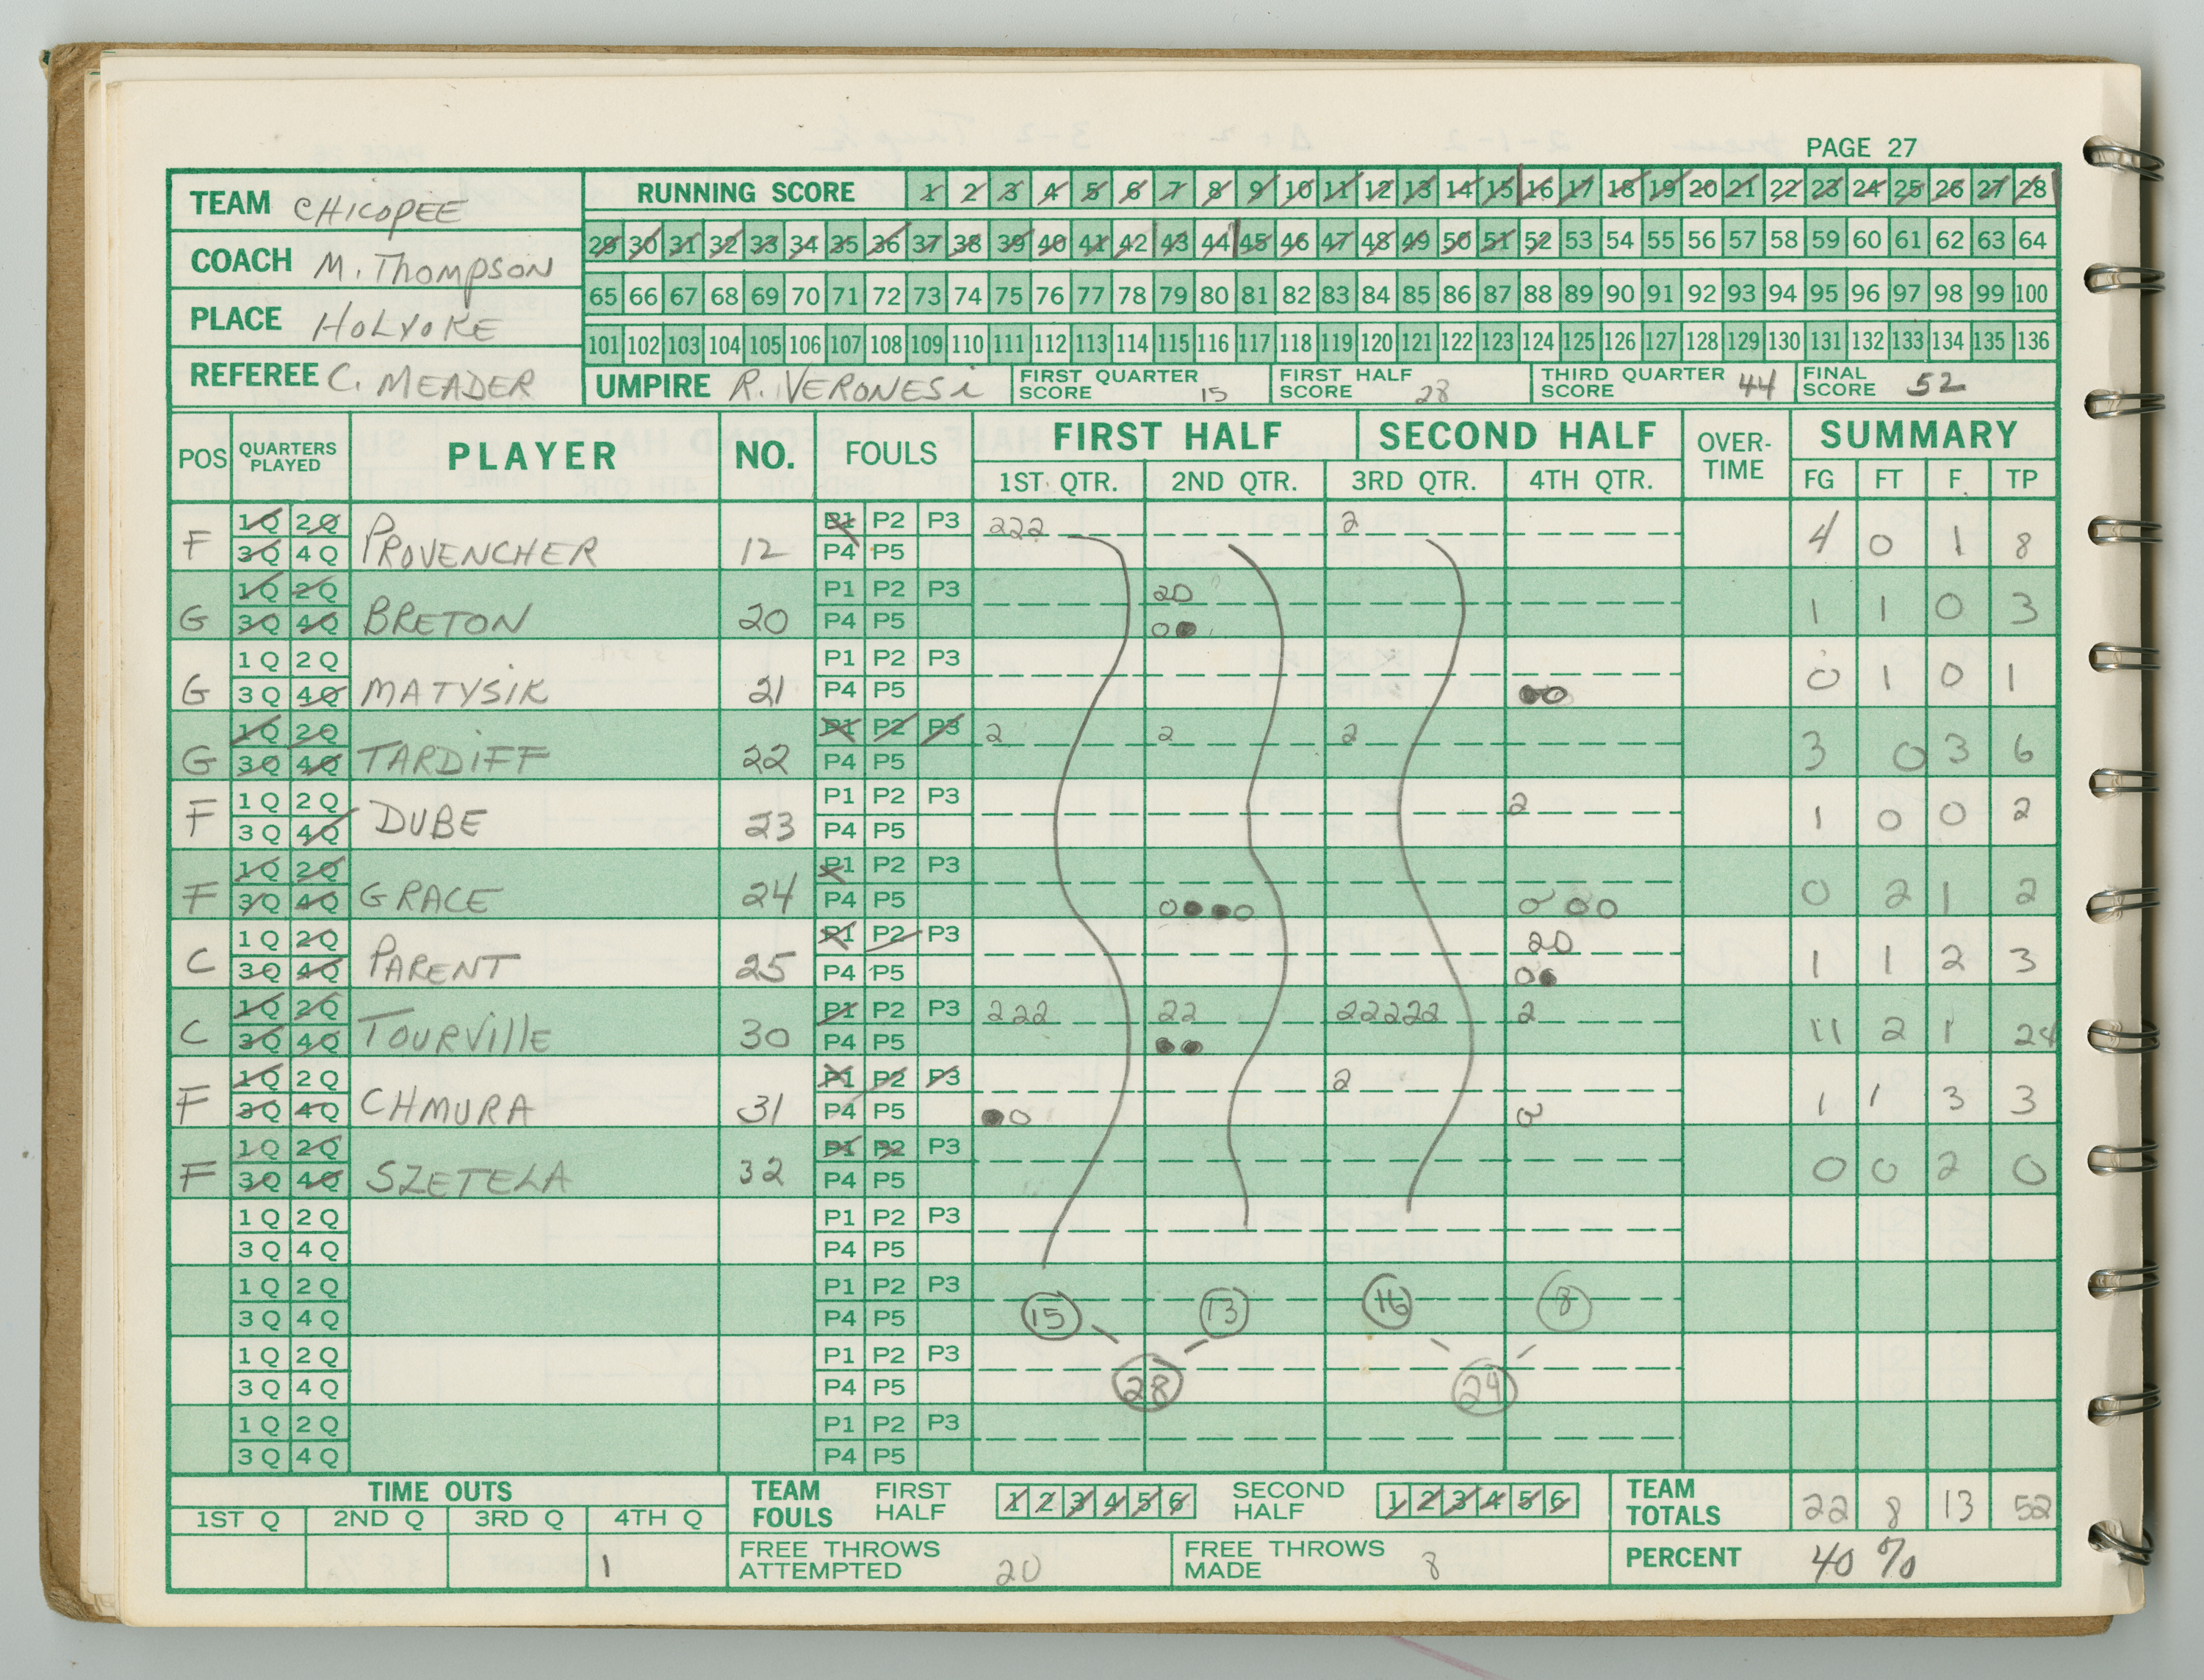 PAGE 27
TEAM CHICOPEE
COACH M. THOMPSON
PLACE HOLYOKE
REFEREE C. MEADER
RUNNING SCORE 1 2 3 4 5 6 7 8 9 10 11 12 13 14 15 16 17 18 19 20 21 22 23 24 25 26 27 28
29 30 31 32 33 34 35 36 37 38 39 40 41 42 43 44 45 46 47 48 49 50 51 52 53 54 55 56 57 58 59 60 61 62 63 64
65 66 67 68 69 70 71 72 73 74 75 76 77 78 79 80 81 82 83 84 85 86 87 88 89 90 91 92 93 94 95 96 97 98 99 100
101 102 103 104 105 106 107 108 109 110 111 112 113 114 115 116 117 118 119 120 121 122 123 124 125 126 127 128 129 130 131 132 133 134 135 136
UMPIRE R. VERONESI FIRST QUARTER SCORE 15 FIRST HALF SCORE 28 THIRD QUARTER SCORE 44 FINAL SCORE 52
POS QUARTERS PLAYED PLAYER NO. FOULS FIRST HALF SECOND HALF OVER-TIME SUMMARY
1ST QTR. 2ND QTR. 3RD QTR. 4TH QTR. FG FT F. TP
1Q 2Q P1 P2 P3 222 2
F 3Q 4Q PROVENCHER 12 P4 P5 4 0 1 8
1Q 2Q P1 P2 P3 20
G 3Q 4Q BRETON 20 P4 P5 1 1 0 3
1Q 2Q P1 P2 P3
G 3Q 4Q MATYSIK 21 P4 P5 0 1 0 1
1Q 2Q P1 P2 P3 2 2 2
G 3Q 4Q TARDIFF 22 P4 P5 3 0 3 6
1Q 2Q P1 P2 P3 2
F 3Q 4Q DUBE 23 P4 P5 1 0 0 2
1Q 2Q P1 P2 P3
F 3Q 4Q GRACE 24 P4 P5 0 2 1 2
1Q 2Q P1 P2 P3 20
C 3Q 4Q PARENT 25 P4 P5 1 1 2 3
1Q 2Q P1 P2 P3 222 22 22222 2
C 3Q 4Q TOURVILLE 30 P4 P5 11 2 1 24
1Q 2Q P1 P2 P3 2
F 3Q 4Q CHMURA 31 P4 P5 1 1 3 3
1Q 2Q P1 P2 P3
F 3Q 4Q SZETELA 32 P4 P5 0 0 2 0
1Q 2Q P1 P2 P3
3Q 4Q P4 P5
1Q 2Q P1 P2 P3
3Q 4Q P4 P5 15 13 16 8
1Q 2Q P1 P2 P3
3Q 4Q P4 P5 28 24
1Q 2Q P1 P2 P3
3Q 4Q P4 P5
TIME OUTS
1ST Q 2ND Q 3RD Q 4TH Q
1
TEAM FOULS FIRST HALF 1 2 3 4 5 6 SECOND HALF 1 2 3 4 5 6 TEAM TOTALS 22 8 13 52
FREE THROWS ATTEMPTED 20 FREE THROWS MADE 8 PERCENT 40%